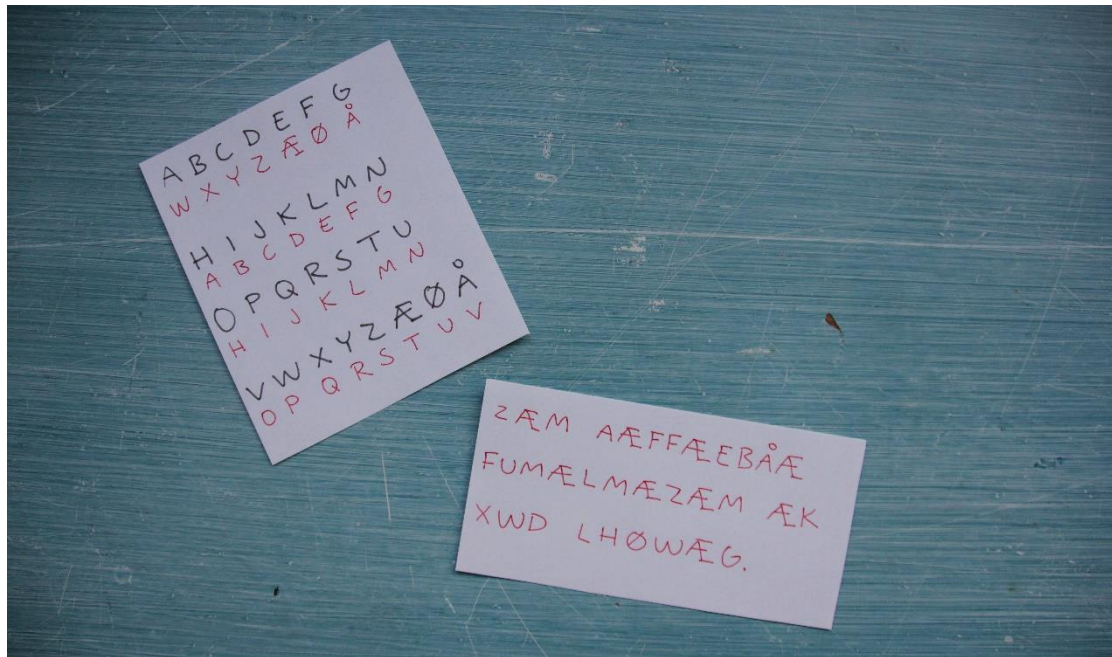 A B C D E F G
W X Y Z Æ Ø Å
H I J K L M N
A B C D E F G
O P Q R S T U
H I J K L M N
V W X Y Z Æ Ø Å
O P Q R S T U V
ZÆM AÆFFÆEBÅÆ
FUMÆLMÆZÆM ÆK
XWD LHØWÆG.